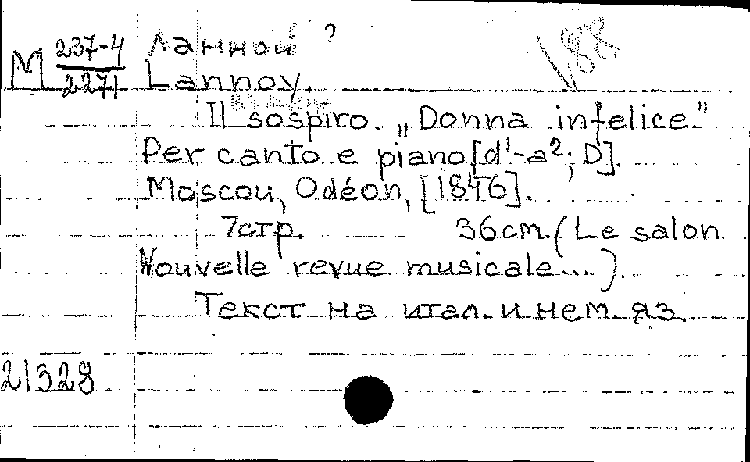 М 237-4 Ланной ?
2271 Lannoy.
Il sospiro. „Donna infelice"
Per canto e piano [d¹-a²; D].
Moscou, Odéon, [1846].
7стр. 36см. (Le salon
Nouvelle revue musicale...)
Текст на итал. и нем. яз.
21328